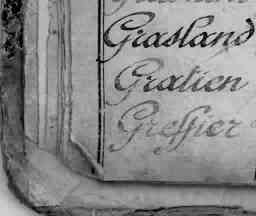 Grasland
Gratien
Greffier